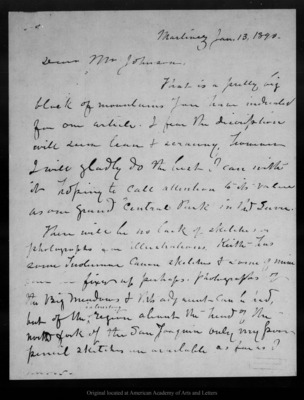 Martinez Jan. 13, 1890.
Dear Mr Johnson,
That is a pretty big
block of mountains you have indicated
for our article. I fear the description
will seem lean & scrawny, however
I will gladly do the best I can with
it hoping to call attention to its value
as one grand Central Park in
There will be no lack of sketches or
photographs for illustrations. Keith has
some Tuolumne Canon sketches & some of mine
fixed up perhaps. Photographs of
the Big Meadows & Neighborhood can be had,
but of the region about the head of the
north fork of the San Joaquin only my poor
pencil sketches are available as far as I
Original located at American Academy of Arts and Letters